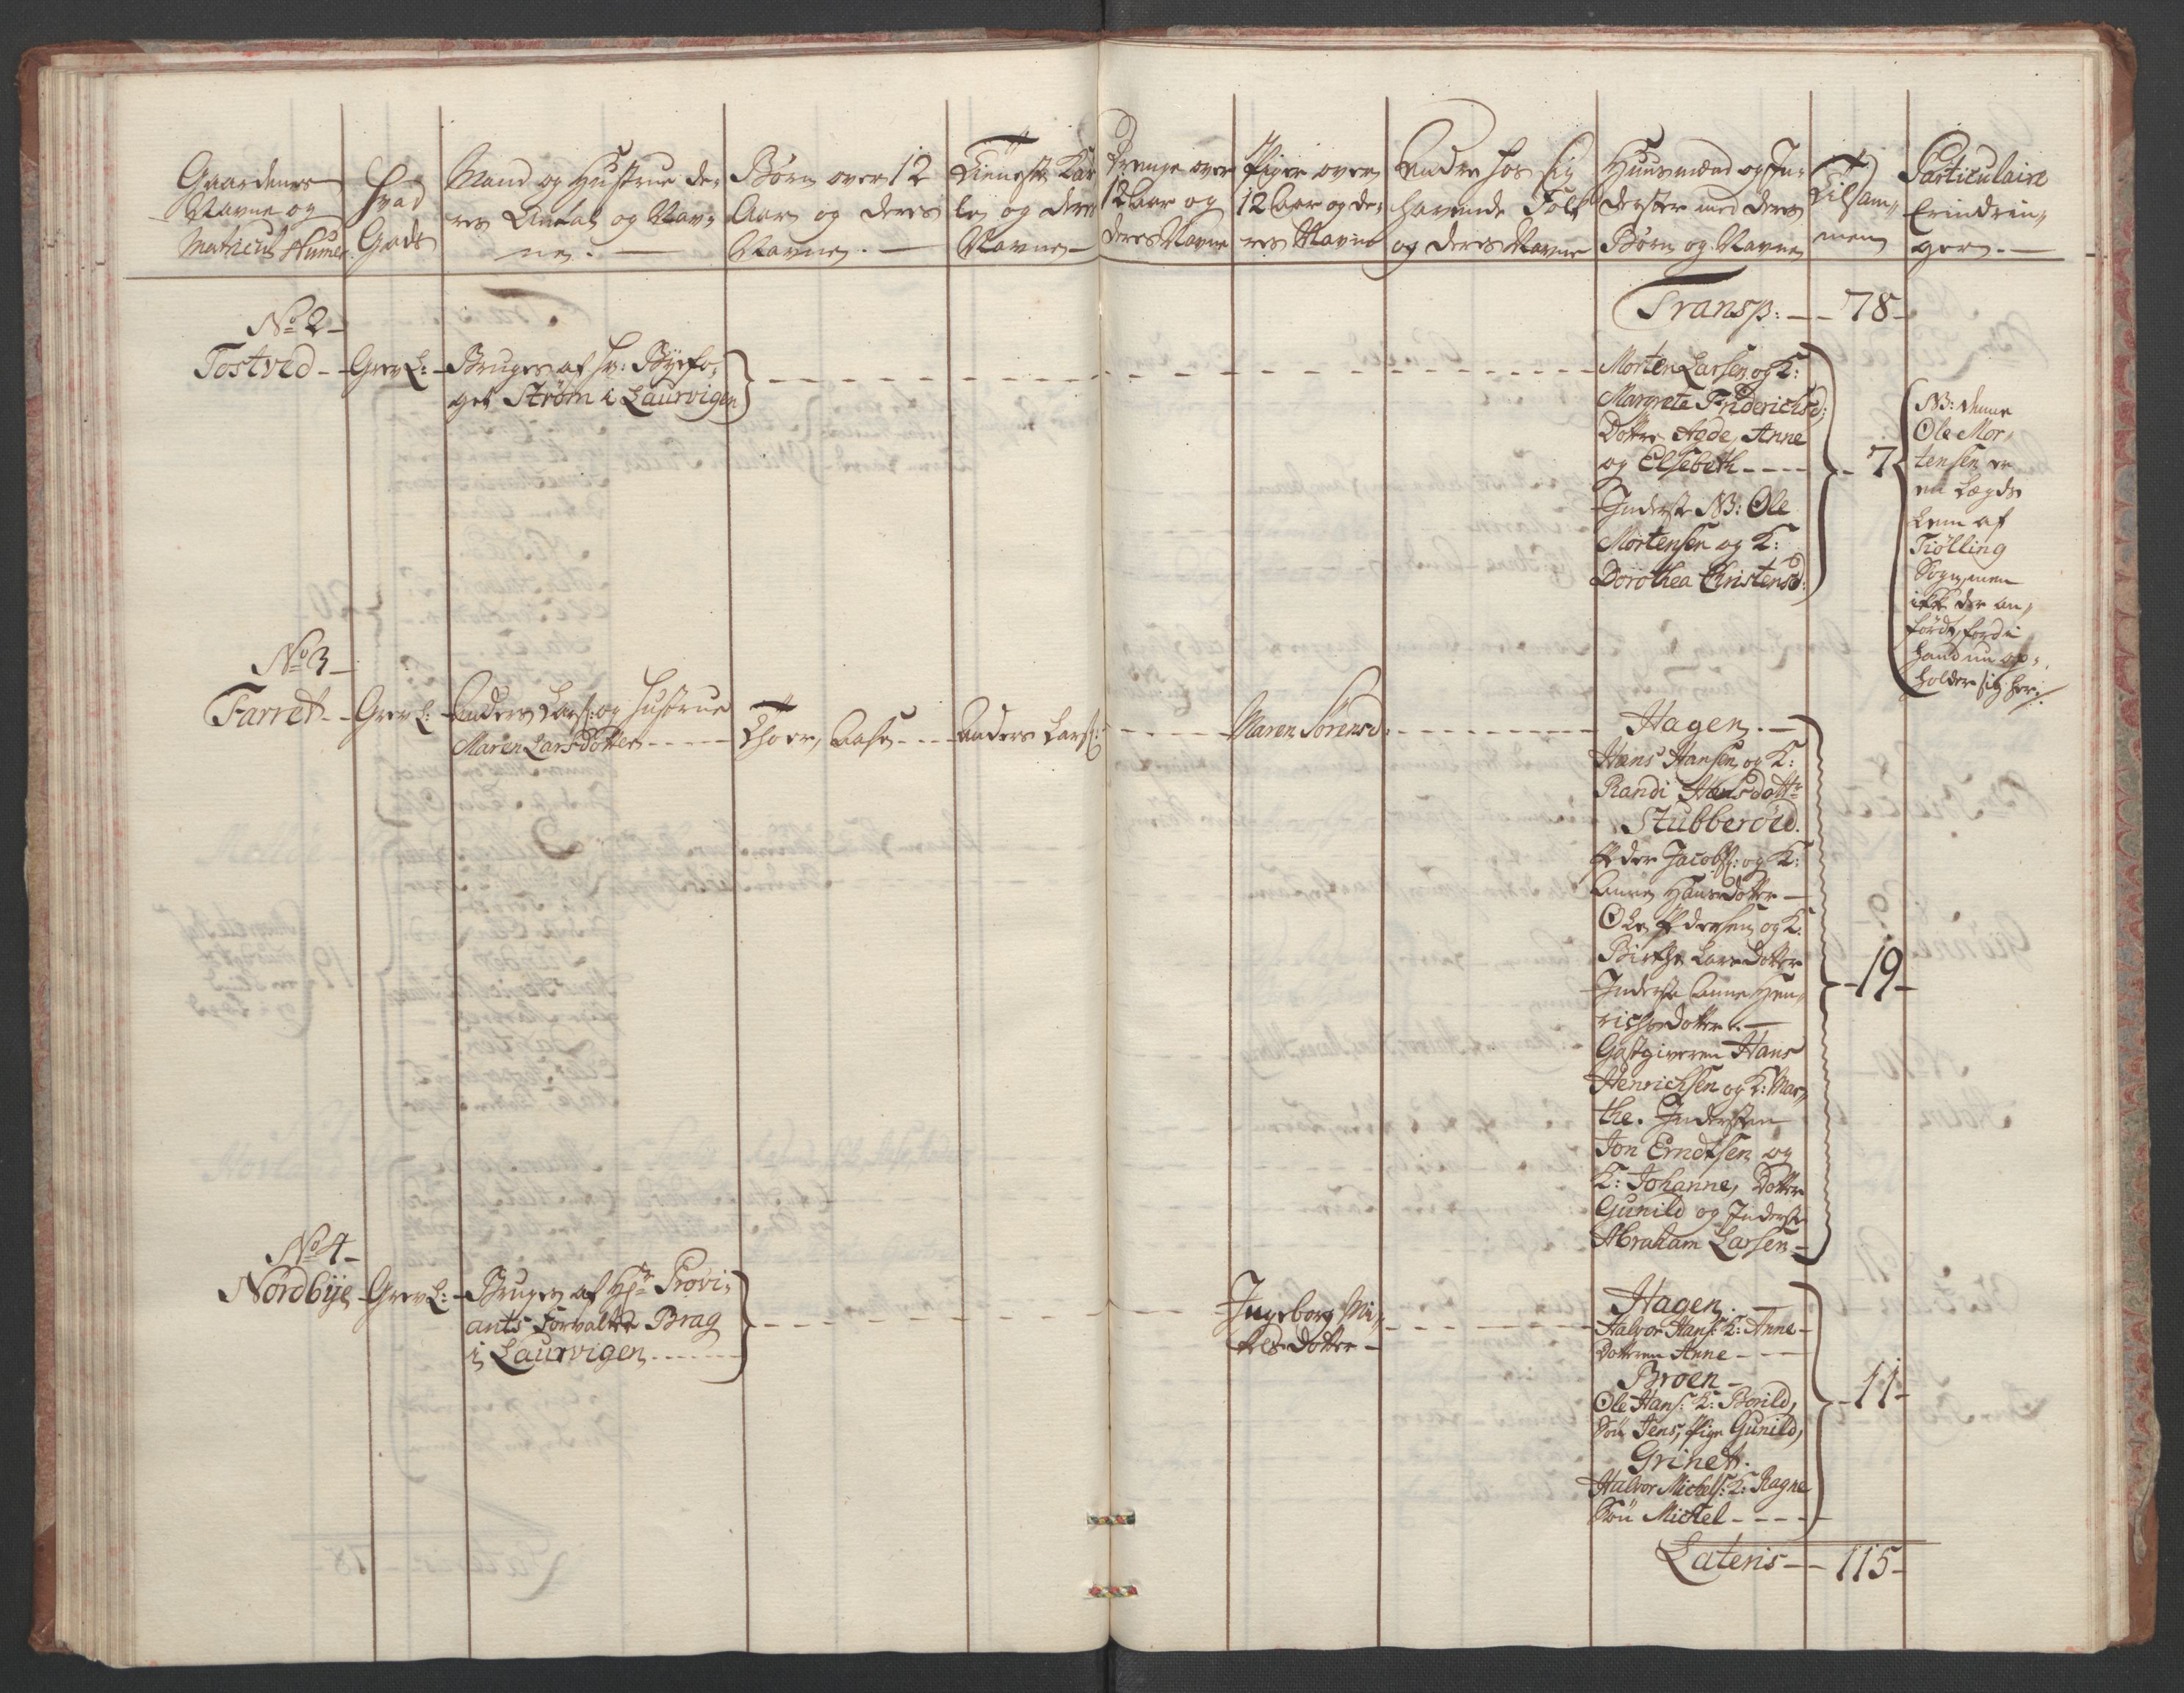 Gaardenes
Navne og
Matricul Numer.
Hvad
Gods
Mand og Hustrue de-
res Antal og Nav-
ne. —
Børn over 12
Aar og deres
Navne. —
Tieneste Kar
le og deres
Navne —
Drenge over
12 Aar og
deres Navne
Piger over
12 Aar og de-
res Navne
Andre hos sig
havende Folk
og deres Navne
Huusmænd og In-
derster med deres
Børn og Navne
Tilsam-
men
Particulaire
Erindrin-
ger. —
Transp: — 78 —
No 2 —
Tostved — Grev L: — Bruges af Hr: Byefo-
get Strøm i Laurvigen
Morten Larsen og K:
Margrete Friderichsd:
Dottre Aade, Anne
og Elsebeth ----
Inderste NB: Ole
Mortensen og K:
Dorothea Christensd:
7
NB: denne
Ole Mor-
tensen er
en Lægds
Lem af
Tiølling
Sogn, men
ikke der an-
ført, fordi
hand nu op-
holder sig her
No 3 —
Farret — Grev L: — Anders Lars: og Hustrue
Maren Larsdotter ----
Thorr, Aase ---
Anders Lars:
Maren Sørensd:
Hagen. —
Hans Hansen og K:
Randi Hansdottr
Stubberød.
Peder Jacobs: og K:
Anne Hansdotter —
Ole Pedersen og K:
Birthe Larsdotter
Inderste Anne Hen-
richsdotter. —
Gastgiveren Hans
Henrichsen og K: Mar-
the. Indersten
Jon Erndtsen og
K: Johanne, Dotter
Gunild og Inderste
Abraham Larsen —
19 —
No 4 —
Nordbye — Grev L: — Bruges af Hr Provi-
ants Forvalter Brag
i Laurvigen ----
Ingeborg Mi-
kelsdotter —
Hagen.
Halvor Hans: K: Anne —
Dotteren Anne — —
Broen —
Ole Hans: K: Borild,
Søn Jens, Pige Gunild,
Grinet.
Halvor Michels: K: Ragne
Søn Michel ----
11 —
Lateris — 115 —